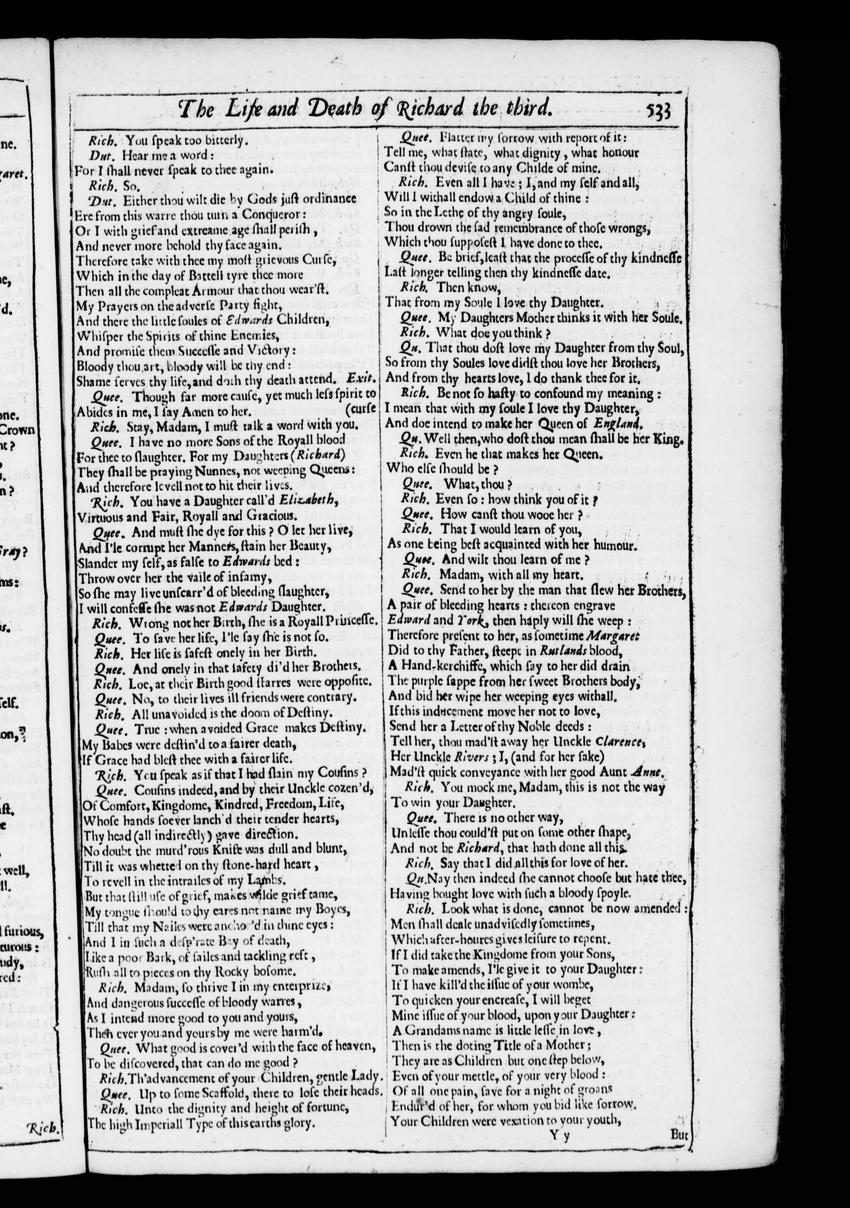 The Life and Death of Richard the third. 533
Rich. You ſpeak too bitterly.
Dut. Hear me a word:
For I ſhall never ſpeak to thee again.
Rich. So.
Dut. Either thou wilt die by Gods juſt ordinance
Ere from this warre thou turn a Conqueror:
Or I with grief and extreame age ſhall periſh,
And never more behold thy face again.
Therefore take with thee my moſt grievous Curſe,
Which in the day of Battell tyre thee more
Then all the compleat Armour that thou wear'ſt.
My Prayers on the adverſe Party fight,
And there the little ſoules of Edwards Children,
Whiſper the Spirits of thine Enemies,
And promiſe them Succeſſe and Victory:
Bloody thou art, bloody will be thy end:
Shame ſerves thy life, and doth thy death attend. Exit.
Quee. Though far more cauſe, yet much leſs ſpirit to
Abides in me, I ſay Amen to her. (curſe
Rich. Stay, Madam, I muſt talk a word with you.
Quee. I have no more Sons of the Royall blood
For thee to ſlaughter. For my Daughters (Richard)
They ſhall be praying Nunnes, not weeping Queens:
And therefore levell not to hit their lives.
Rich. You have a Daughter call'd Elizabeth,
Virtuous and Fair, Royall and Gracious.
Quee. And muſt ſhe dye for this? O let her live,
And I'le corrupt her Manners, ſtain her Beauty,
Slander my ſelf, as falſe to Edwards bed:
Throw over her the vaile of infamy,
So ſhe may live unſcarr'd of bleeding ſlaughter,
I will confeſſe ſhe was not Edwards Daughter.
Rich. Wrong not her Birth, ſhe is a Royall Princeſſe.
Quee. To ſave her life, I'le ſay ſhe is not ſo.
Rich. Her life is ſafeſt only in her Birth.
Quee. And onely in that ſafety di'd her Brothers.
Rich. Loe, at their Birth good ſtarres were oppoſite.
Quee. No, to their lives ill friends were contrary.
Rich. All unavoided is the doom of Deſtiny.
Quee. True: when avoided Grace makes Deſtiny.
My Babes were deſtin'd to a fairer death,
If Grace had bleſt thee with a fairer life.
Rich. You ſpeak as if that I had ſlain my Couſins?
Quee. Couſins indeed, and by their Unckle cozen'd,
Of Comfort, Kingdome, Kindred, Freedom, Life,
Whoſe hands ſoever lanch'd their tender hearts,
Thy head (all indirectly) gave direction.
No doubt the murd'rous Knife was dull and blunt,
Till it was whetted on thy ſtone-hard heart,
To revell in the intrailes of my Lambs.
But that ſtill uſe of grief, makes wilde grief tame,
My tongue ſhou'd to thy eares not name my Boyes,
Till that my Nailes were anchor'd in thine eyes:
And I in ſuch a deſp'rate Bay of death,
Like a poor Bark, of ſailes and tackling reft,
Ruſh all to pieces on thy Rocky boſome.
Rich. Madam, ſo thrive I in my enterprize,
And dangerous ſucceſſe of bloody warres,
As I intend more good to you and yours,
Then ever you and yours by me were harm'd.
Quee. What good is cover'd with the face of heaven,
To be diſcovered, that can do me good?
Rich. Th'advancement of your Children, gentle Lady.
Quee. Up to ſome Scaffold, there to loſe their heads.
Rich. Unto the dignity and height of fortune,
The high Imperiall Type of this earths glory.
Quee. Flatter my ſorrow with report of it:
Tell me, what ſtate, what dignity, what honour
Canſt thou deviſe to any Childe of mine.
Rich. Even all I have; I, and my ſelf and all,
Will I withall endow a Child of thine:
So in the Lethe of thy angry ſoule,
Thou drown the ſad remembrance of thoſe wrongs,
Which thou ſuppoſeſt I have done to thee.
Quee. Be brief, leaſt that the proceſſe of thy kindneſſe
Laſt longer telling then thy kindneſſe date.
Rich. Then know,
That from my Soule I love thy Daughter.
Quee. My Daughters Mother thinks it with her Soule.
Rich. What doe you think?
Qu. That thou doſt love my Daughter from thy Soul,
So from thy Soules love didſt thou love her Brothers,
And from thy hearts love, I do thank thee for it.
Rich. Be not ſo haſty to confound my meaning:
I mean that with my ſoule I love thy Daughter,
And doe intend to make her Queen of England.
Qu. Well then, who doſt thou mean ſhall be her King.
Rich. Even he that makes her Queen.
Who elſe ſhould be?
Quee. What, thou?
Rich. Even ſo: how think you of it?
Quee. How canſt thou wooe her?
Rich. That I would learn of you,
As one being beſt acquainted with her humour.
Quee. And wilt thou learn of me?
Rich. Madam, with all my heart.
Quee. Send to her by the man that ſlew her Brothers,
A pair of bleeding hearts: thereon engrave
Edward and York, then haply will ſhe weep:
Therefore preſent to her, as ſometime Margaret
Did to thy Father, ſteept in Rutlands blood,
A Hand-kerchiffe, which ſay to her did drain
The purple ſappe from her ſweet Brothers body,
And bid her wipe her weeping eyes withall.
If this inducement move her not to love,
Send her a Letter of thy Noble deeds:
Tell her, thou mad'ſt away her Unckle Clarence,
Her Unckle Rivers; I, (and for her ſake)
Mad'ſt quick conveyance with her good Aunt Anne.
Rich. You mock me, Madam, this is not the way
To win your Daughter.
Quee. There is no other way,
Unleſſe thou could'ſt put on ſome other ſhape,
And not be Richard, that hath done all this.
Rich. Say that I did all this for love of her.
Qu. Nay then indeed ſhe cannot chooſe but hate thee,
Having bought love with ſuch a bloody ſpoyle.
Rich. Look what is done, cannot be now amended:
Men ſhall deale unadviſedly ſometimes,
Which after-houres gives leiſure to repent.
If I did take the Kingdome from your Sons,
To make amends, I'le give it to your Daughter:
If I have kill'd the iſſue of your wombe,
To quicken your encreaſe, I will beget
Mine iſſue of your blood, upon your Daughter:
A Grandams name is little leſſe in love,
Then is the doting Title of a Mother;
They are as Children but one ſtep below,
Even of your mettle, of your very blood:
Of all one pain, ſave for a night of groans
Endur'd of her, for whom you bid like ſorrow.
Your Children were vexation to your youth,
Y y But